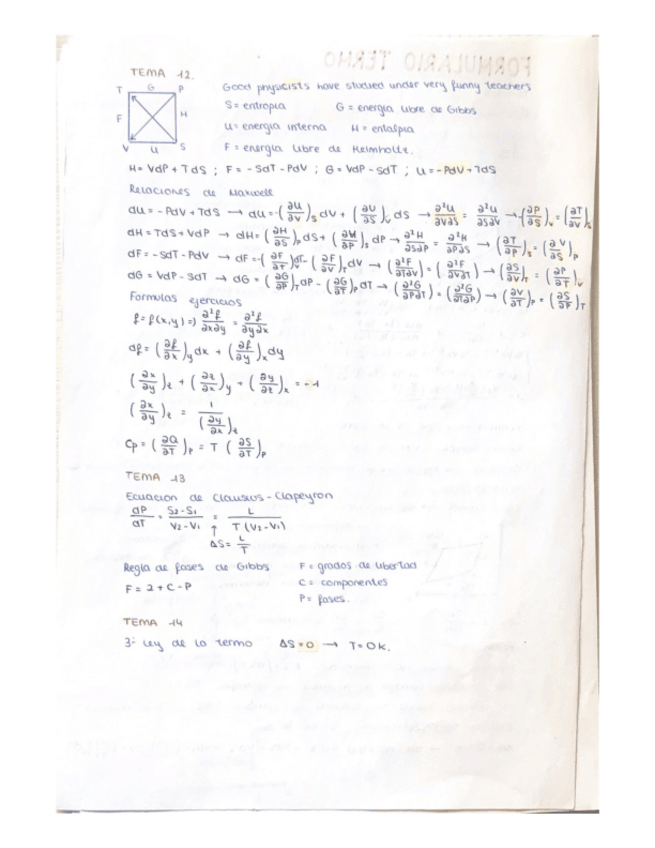 TEMA 12.
T G P
F H
V U S
Good physicists have studied under very funny teachers
S= entropia G = energía libre de Gibbs
U= energia interna H = entalpia
F = energía libre de Helmholtz.
H= VdP + TdS ; F = - SdT - PdV ; G = VdP - SdT ; U = - PdV + TdS
Relaciones de Maxwell
dU = - PdV + TdS → dU = -(∂U/∂V)_S dV + (∂U/∂S)_V dS → ∂²U/∂V∂S = ∂²U/∂S∂V → -(∂P/∂S)_V = (∂T/∂V)_S
dH = TdS + VdP → dH = (∂H/∂S)_P dS + (∂H/∂P)_S dP → ∂²H/∂S∂P = ∂²H/∂P∂S → (∂T/∂P)_S = (∂V/∂S)_P
dF = - SdT - PdV → dF = -(∂F/∂T)_V dT - (∂F/∂V)_T dV → (∂²F/∂T∂V) = (∂²F/∂V∂T) → (∂S/∂V)_T = (∂P/∂T)_V
dG = VdP - SdT → dG = (∂G/∂P)_T dP - (∂G/∂T)_P dT → (∂²G/∂P∂T) = (∂²G/∂T∂P) → (∂V/∂T)_P = (∂S/∂P)_T
Formulas ejercicios
f = f(x,y) =) ∂²f/∂x∂y = ∂²f/∂y∂x
df = (∂f/∂x)_y dx + (∂f/∂y)_x dy
(∂x/∂y)_z + (∂z/∂x)_y + (∂y/∂z)_x = -1
(∂x/∂y)_z = 1/(∂y/∂x)_z
Cp = (∂Q/∂T)_P = T (∂S/∂T)_P
TEMA 13
Ecuacion de Clausius - Clapeyron
dP/dT = S2-S1/V2-V1 = L/T(V2-V1)
↑
ΔS = L/T
Regla de fases de Gibbs F = grados de libertad
F = 2 + C - P C = componentes
P = fases.
TEMA 14
3ª Ley de la termo ΔS = 0 → T = 0 K.
FORMULARIO TERMO